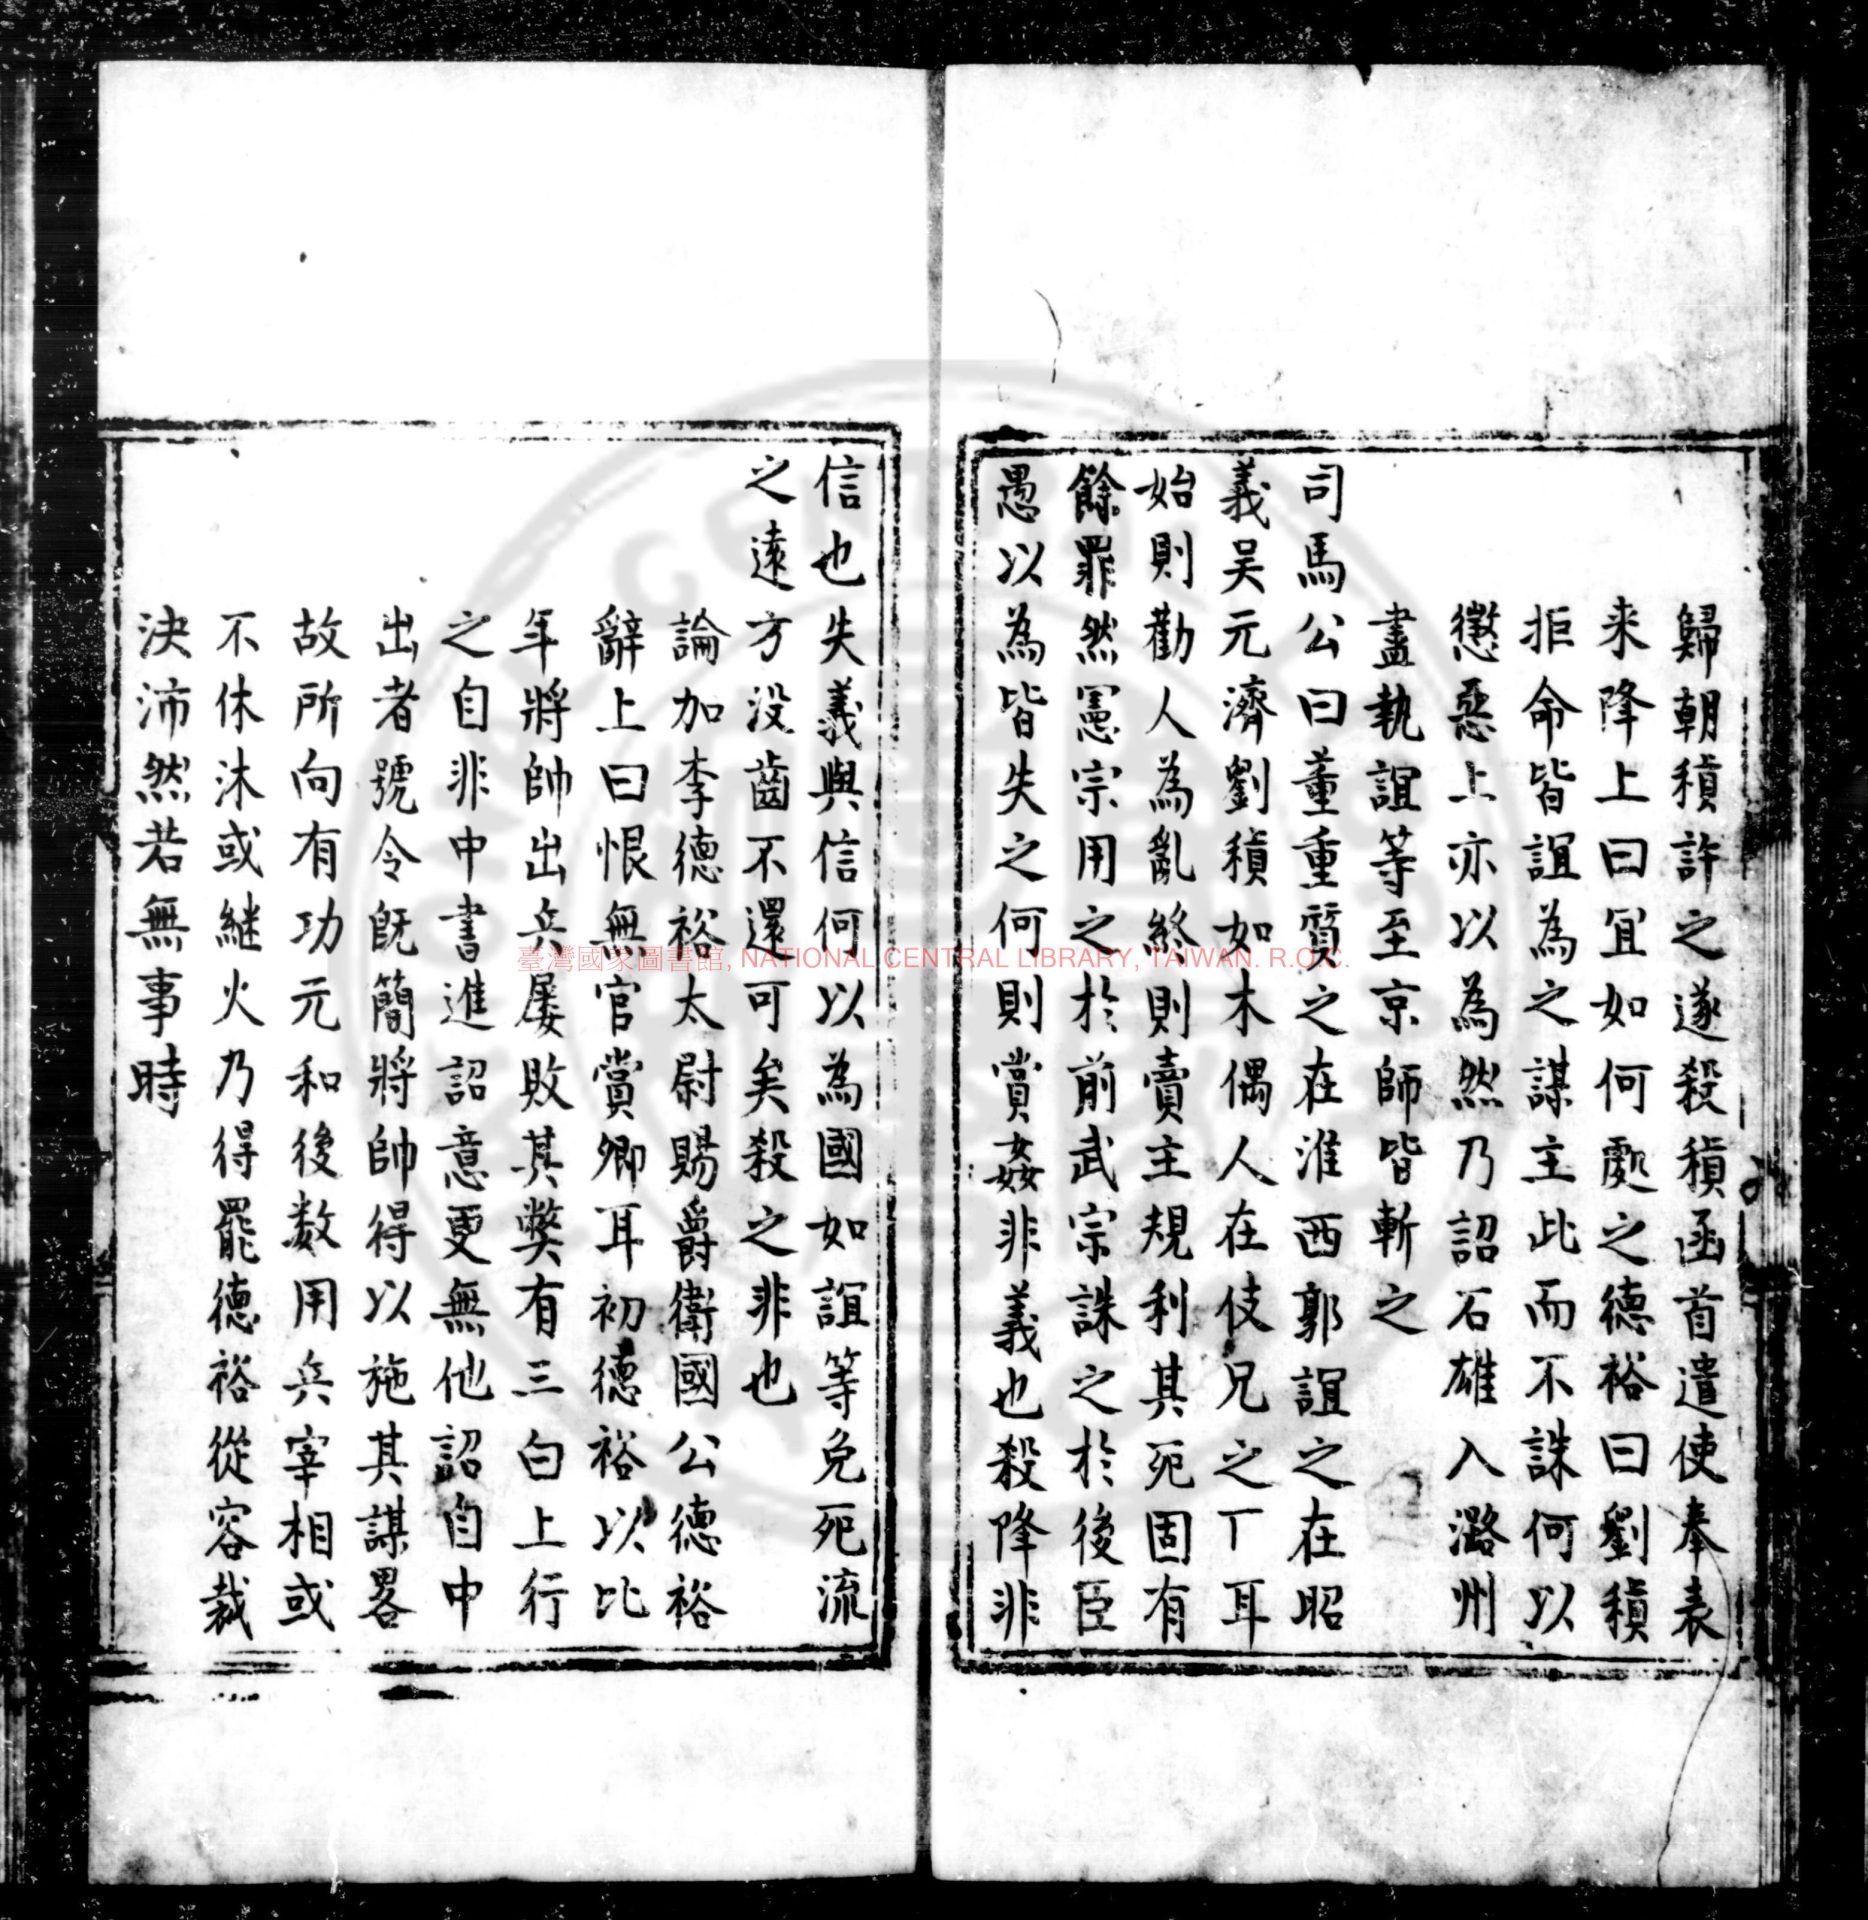 歸朝稹許之遂殺稹函首遣使奉表
来降上曰冝如何處之德裕曰劉稹
拒命皆誼為之謀主此而不誅何以
懲惡上亦以為然乃詔石雄入潞州
盡執誼等至京師皆斬之
司馬公曰董重質之在淮西郭誼之在昭
義吴元濟劉稹如木偶人在伎兄之丅耳
始則勸人為亂終則賣主規利其死固有
餘罪然憲宗用之於前武宗誅之於後臣
愚以為皆失之何則賞姦非義也殺降非
信也失義與信何以為國如誼等免死流
之逺方没齒不還可矣殺之非也
論加李德裕太尉賜爵衛國公德裕
辭上曰恨無官賞卿耳初德裕以比
年將帥出兵屢敗其獘有三白上行
之自非中書進詔意更無他詔自中
出者號令既簡將帥得以施其謀畧
故所向有功元和後数用兵宰相或
不休沐或継火乃得罷德裕從容裁
決沛然若無事時
臺灣國家圖書館, NATIONAL CENTRAL LIBRARY, TAIWAN. R.O.C.